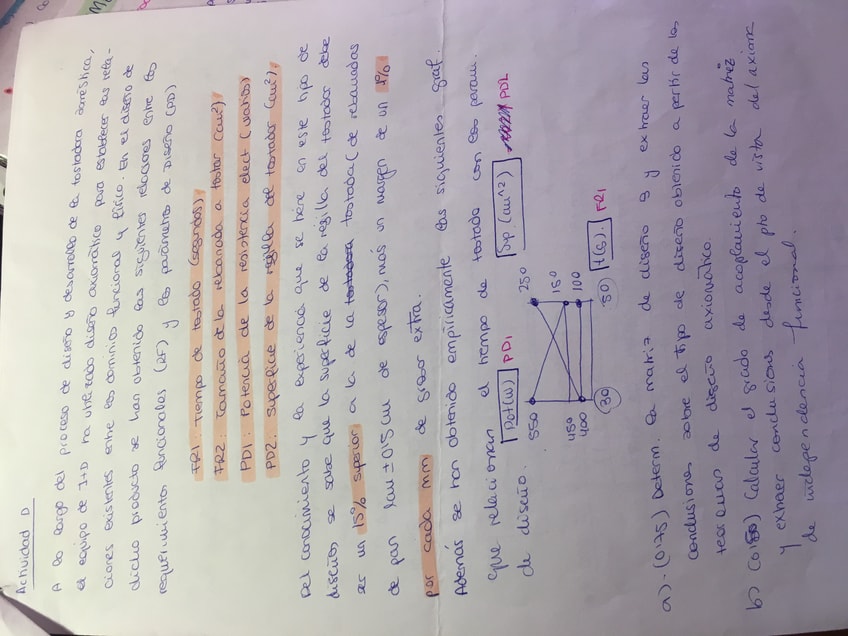 Actividad D
A lo largo del proceso de diseño y desarrollo de la tostadora doméstica,
el equipo de I+D ha utilizado diseño axiomático para establecer las rela-
ciones existentes entre los dominios funcional y físico. En el diseño de
dicho producto se han obtenido las siguientes relaciones entre los
requerimientos funcionales (RF) y los parámetros de Diseño (PD)
FR1: Tiempo de tostado (segundos)
FR2: Tamaño de la rebanada a tostar (cm²)
PD1: Potencia de la resistencia elect (vatios)
PD2: Superficie de la rejilla del tostador (cm²)
Del conocimiento y la experiencia que se tiene en este tipo de
diseños se sabe que la superficie de la rejilla del tostador debe
ser un 15% superior a la de la tostada (de rebanadas
de pan 1cm ± 0'5 cm de espesor), más un margen de un 1%
por cada mm de grosor extra.
Además se han obtenido empíricamente las siguientes graf.
que relacionan el tiempo de tostado con esos param.
de diseño.
Pot(W) PD1 Sup.(cm^2) PD2
550 250
450 150
400 100
30 50 t(s). FR1
a) - (0'75) Determ. la matriz de diseño y extraer las
conclusiones sobre el tipo de diseño obtenido a partir de los
teoremas de diseño axiomático.
b) Calcular el grado de acoplamiento de la matriz
y extraer conclusions desde el pto de vista del axioma
de independencia funcional.